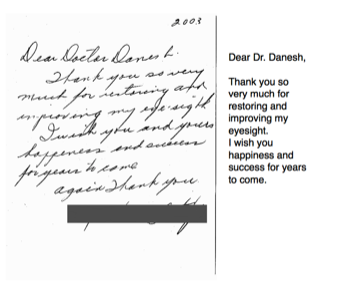 2003
Dear Doctor Danesh.
Thank you so very
much for restoring and
improving my eye-sight
I wish you and yours
happiness and success
for years to come
again thank you
Dear Dr. Danesh,
Thank you so
very much for
restoring and
improving my
eyesight.
I wish you
happiness and
success for years
to come.